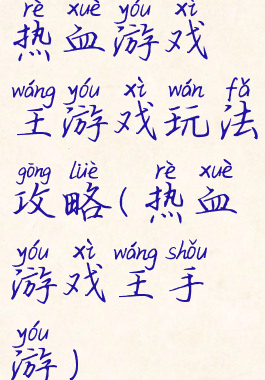 rè xuè yóu xì
热血游戏
wáng yóu xì wán fǎ
王游戏玩法
gōng lüè rè xuè
攻略(热血
yóu xì wáng shǒu
游戏王手
yóu
游)